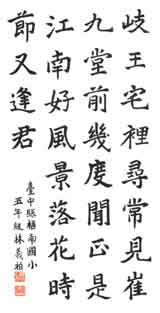 岐王宅裡尋常見崔
九堂前幾度聞正是
江南好風景落花時
節又逢君
臺中縣梧南國小
五年級林義柏